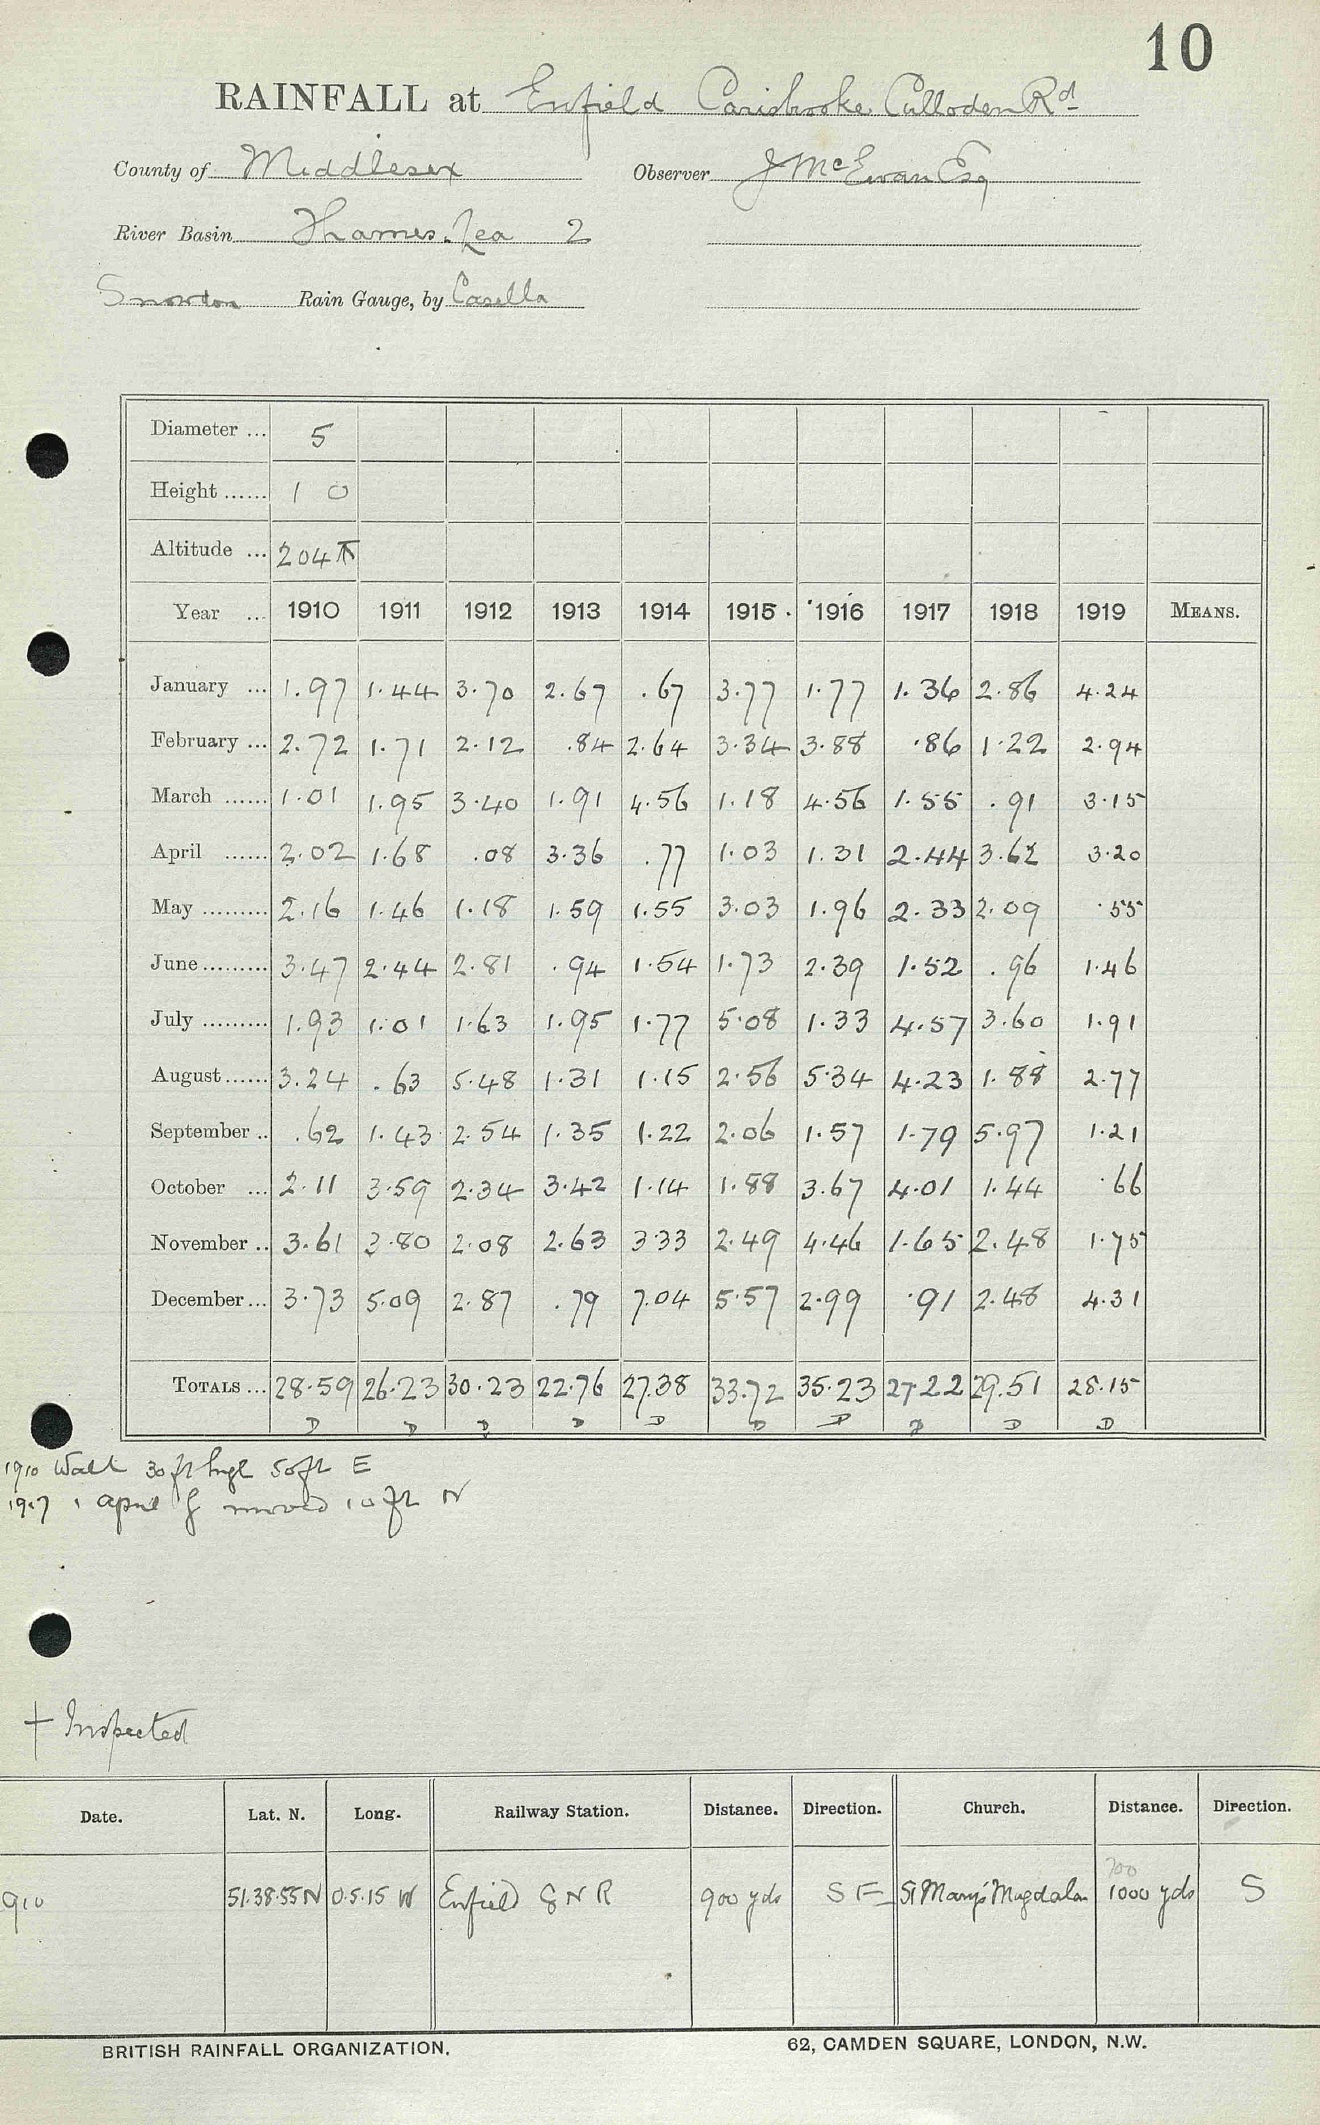 10
RAINFALL at Enfield Carisbrooke Culloden Rd
County of Middlesex Observer J McEwan Esq
River Basin Thames. Lea 2
Snowdon Rain Gauge, by Casella
Diameter ... 5
Height ...... 1 0
Altitude ... 204
Year ... 1910 1911 1912 1913 1914 1915 1916 1917 1918 1919 MEANS.
January ... 1.97 1.44 3.70 2.67 .67 3.77 1.77 1.36 2.86 4.24
February ... 2.72 1.71 2.12 .84 2.64 3.34 3.88 .86 1.22 2.94
March ...... 1.01 1.95 3.40 1.91 4.56 1.18 4.56 1.55 .91 3.15
April ...... 2.02 1.68 .08 3.36 .77 1.03 1.31 2.44 3.62 3.20
May ......... 2.16 1.46 1.18 1.59 1.55 3.03 1.96 2.33 2.09 .55
June ......... 3.47 2.44 2.81 .94 1.54 1.73 2.39 1.52 .96 1.46
July ......... 1.93 1.01 1.63 1.95 1.77 5.08 1.33 4.57 3.60 1.91
August ...... 3.24 .63 5.48 1.31 1.15 2.56 5.34 4.23 1.88 2.77
September .. .62 1.43 2.54 1.35 1.22 2.06 1.57 1.79 5.97 1.21
October ... 2.11 3.59 2.34 3.42 1.14 1.88 3.67 4.01 1.44 .66
November .. 3.61 3.80 2.08 2.63 3.33 2.49 4.46 1.65 2.48 1.75
December ... 3.73 5.09 2.87 .79 7.04 5.57 2.99 .91 2.48 4.31
TOTALS ... 28.59 26.23 30.23 22.76 27.38 33.72 35.23 27.22 29.51 28.15
D D D D D D D D D D
1910 Wall 30 ft high 50ft E
1917 1 April G moved 10 ft N
† Inspected
Date. Lat. N. Long. Railway Station. Distance. Direction. Church. Distance. Direction.
700
910 51.38.55N 0.5.15 W Enfield G N R 900 yds S E St Mary's Magdalen 1000 yds S
BRITISH RAINFALL ORGANIZATION. 62, CAMDEN SQUARE, LONDON, N.W.